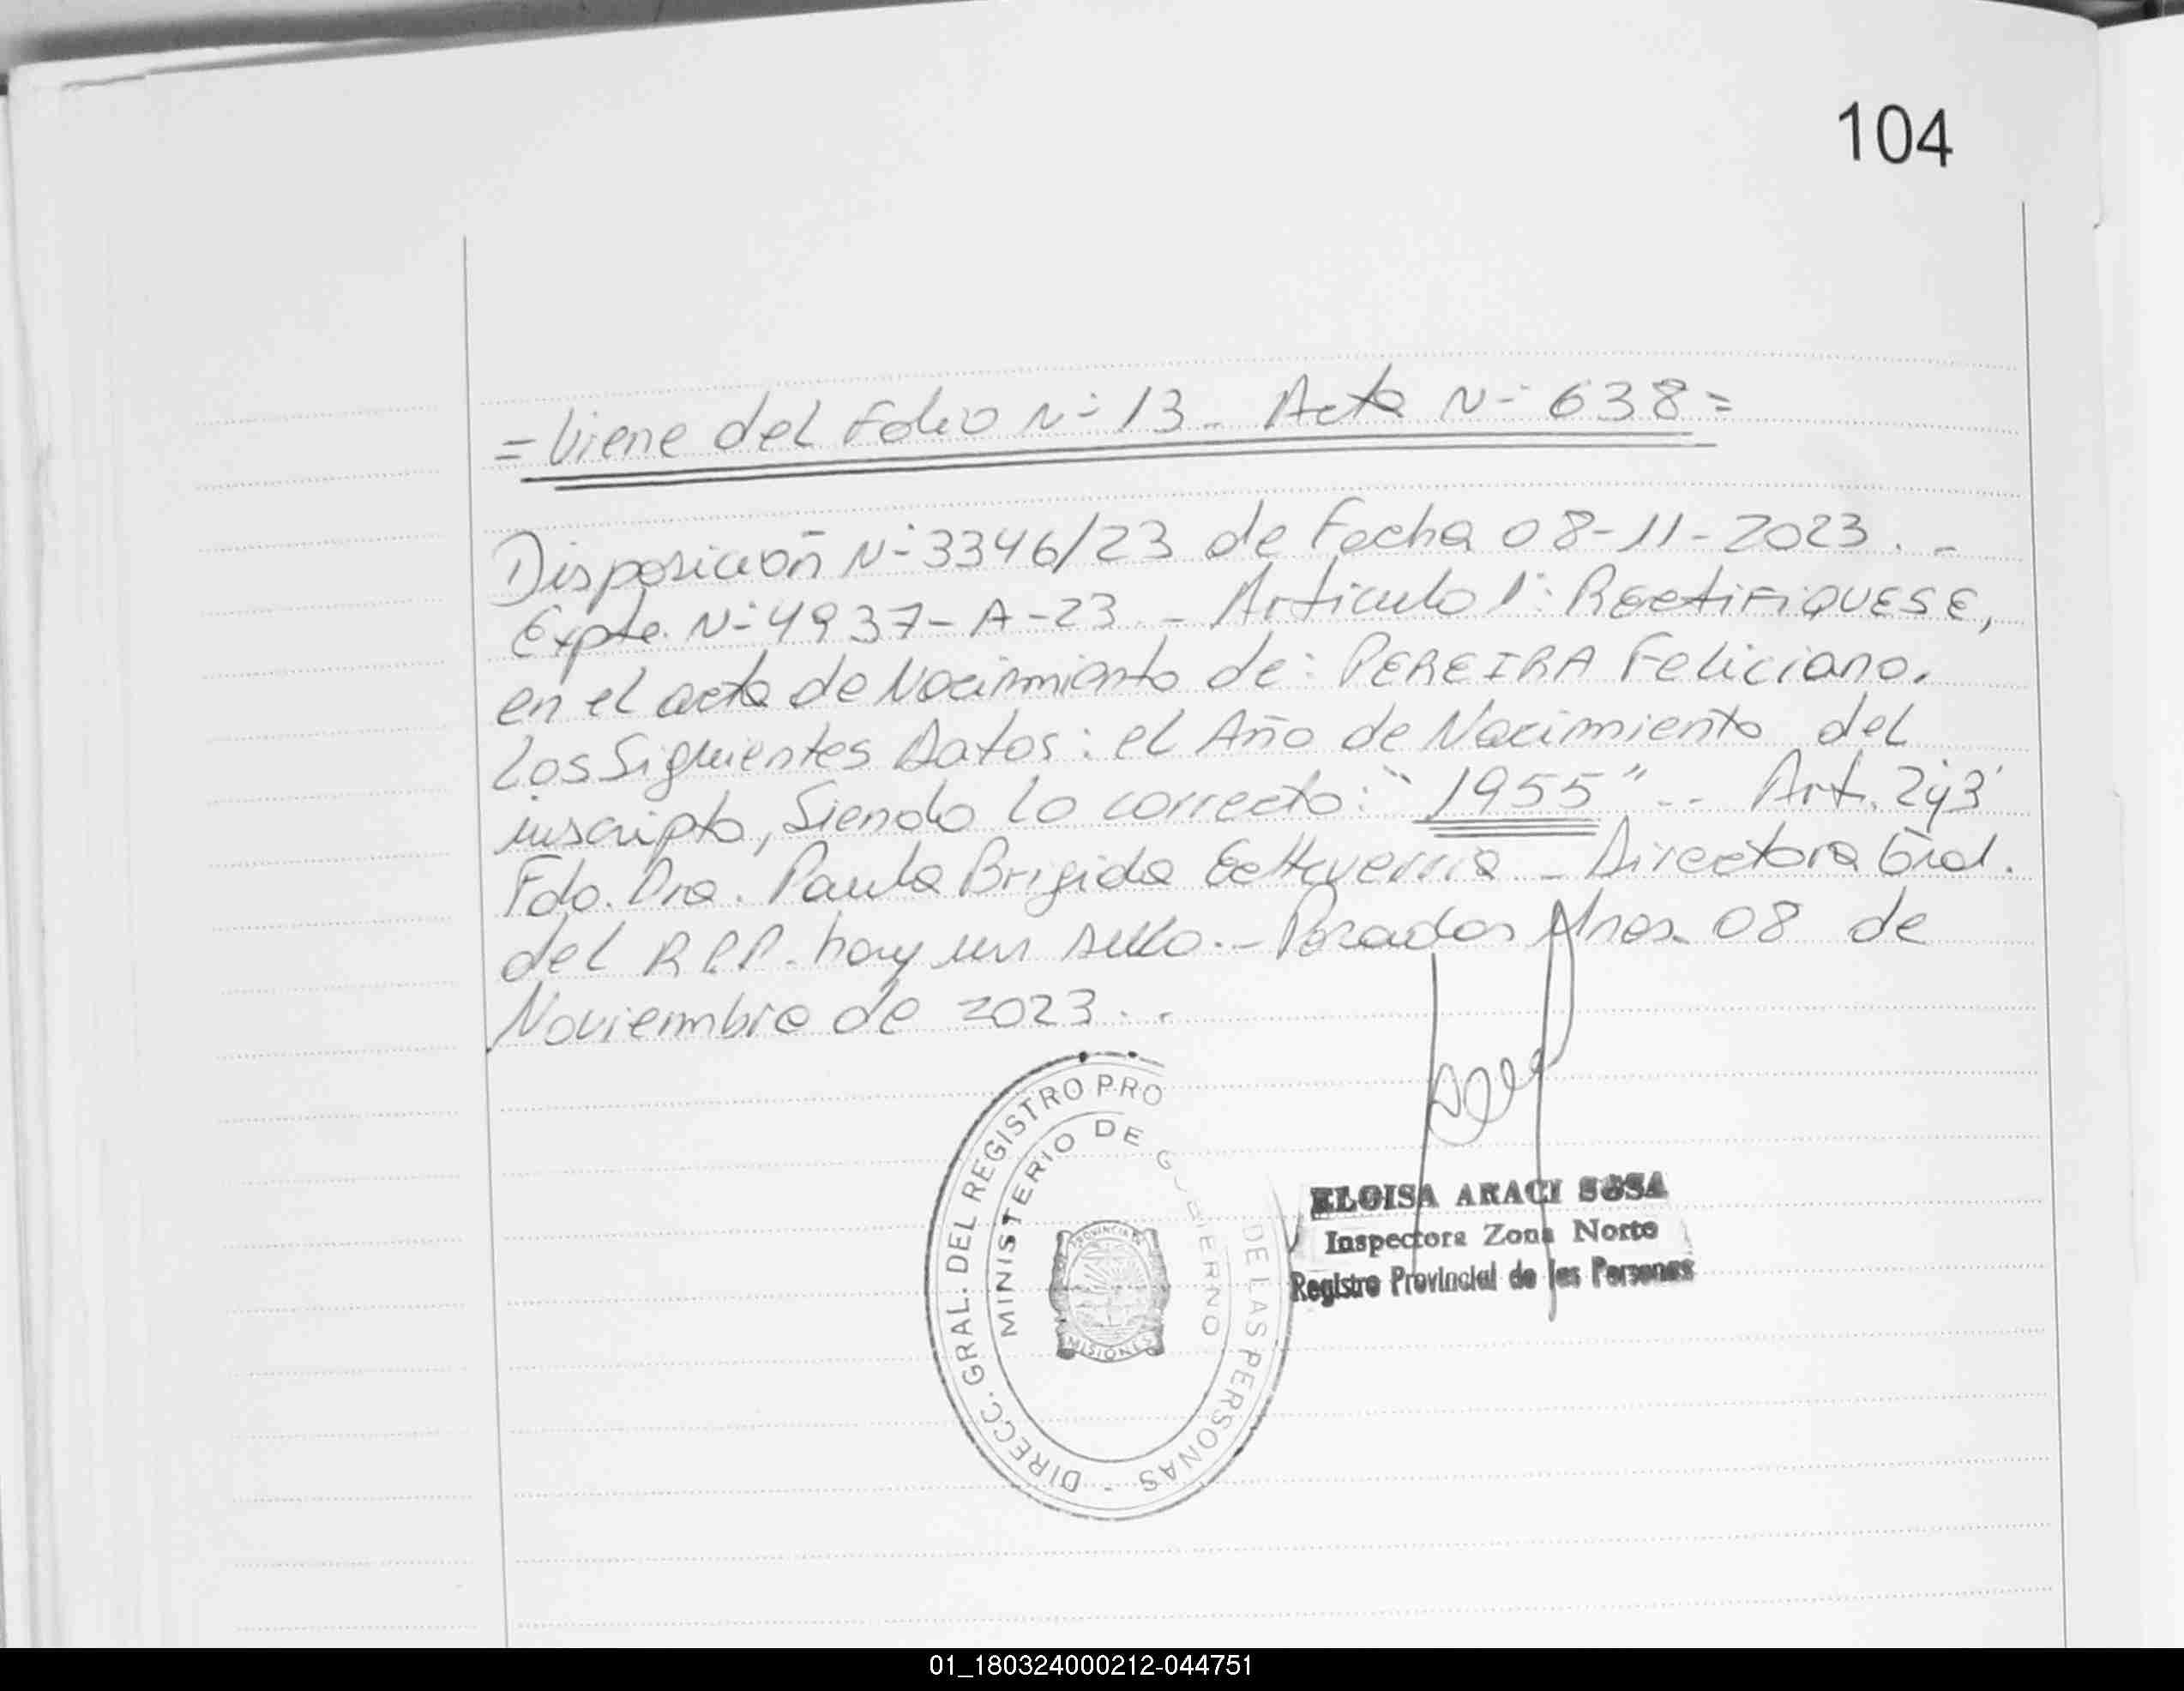 104
= Viene del Folio N° 13 - Acta N° 638 =
Disposición N° 3346/23 de Fecha 08-11-2023. -
Expte. N° 4937-A-23. - Articulo 1°: REctiFiQUESE,
en el acta de Nacimiento de: PEREIRA Feliciano.
Los Siguientes Datos: el Año de Nacimiento del
inscripto, Siendo lo correcto: "1955" -. Art. 2y3
Fdo. Dra. Paula Brigida Echeverria - Directora Gral.
del R.P.P. hay un sello. - Posadas Mnes. 08 de
Noviembre de 2023. -
DIRECC. GRAL. DEL REGISTRO PRO DE LAS PERSONAS -
MINISTERIO DE GOBIERNO
PROVINCIA
MISIONES
ELOISA ARACI SOSA
Inspectora Zona Norte
Registro Provincial de las Personas
01_180324000212-044751